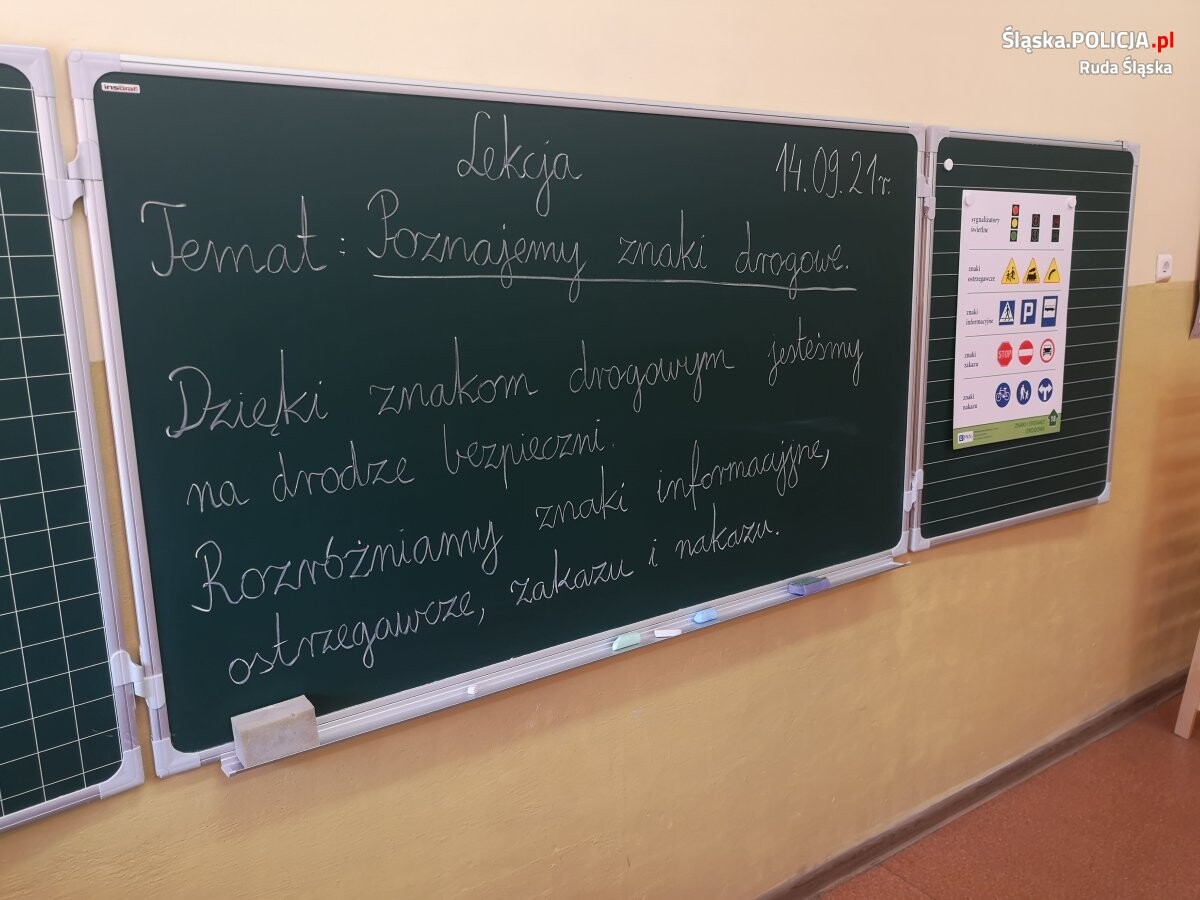 Śląska.POLICJA.pl
Ruda Śląska
Lekcja
14.09.21r.
Temat: Poznajemy znaki drogowe.
Dzięki znakom drogowym jesteśmy
na drodze bezpieczni.
Rozróżniamy znaki informacyjne,
ostrzegawcze, zakazu i nakazu.
sygnalizatory
świetlne
znaki
ostrzegawcze
znaki
informacyjne
P
znaki
zakazu
STOP
znaki
nakazu